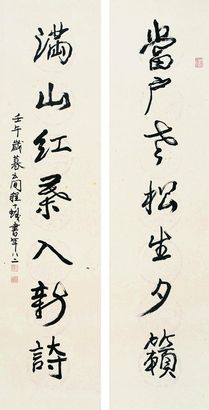 當户老松生夕籟
滿山紅葉入新詩
壬午歲暮 程十髮書年八二